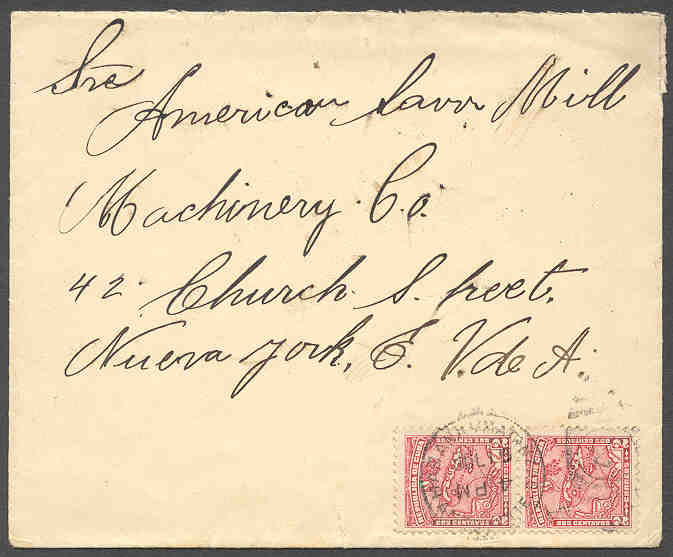 Sre
American Saw Mill
Machinery Co.
42 Church Street.
Nueva York, E. V. de A.
4 PM
DOS CENTAVOS
DOS CENTAVOS